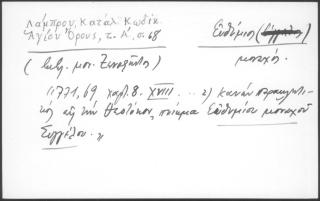 Λάμπρου, Κατάλ. Κωδίκ.
Ἁγίου Ὄρους, τ. Α΄, σ. 68
Εὐθύμιος ( )
μοναχός.
( μον. Ξενοφῶντος )
1771, 69 χαρτ. 8. XVIII ... 2) κανὼν παρακλητι-
κὸς εἰς τὴν Θεοτόκον, ποίημα Εὐθυμίου μοναχοῦ